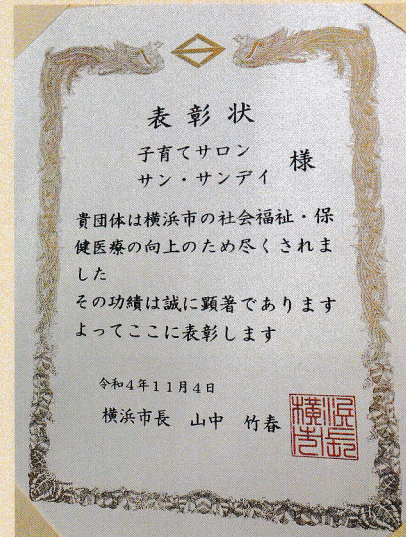 表彰状
子育てサロン
サン・サンデイ 様
貴団体は横浜市の社会福祉・保
健医療の向上のため尽くされま
した
その功績は誠に顕著であります
よってここに表彰します
令和4年11月4日
横浜市長 山中 竹春
横浜市長